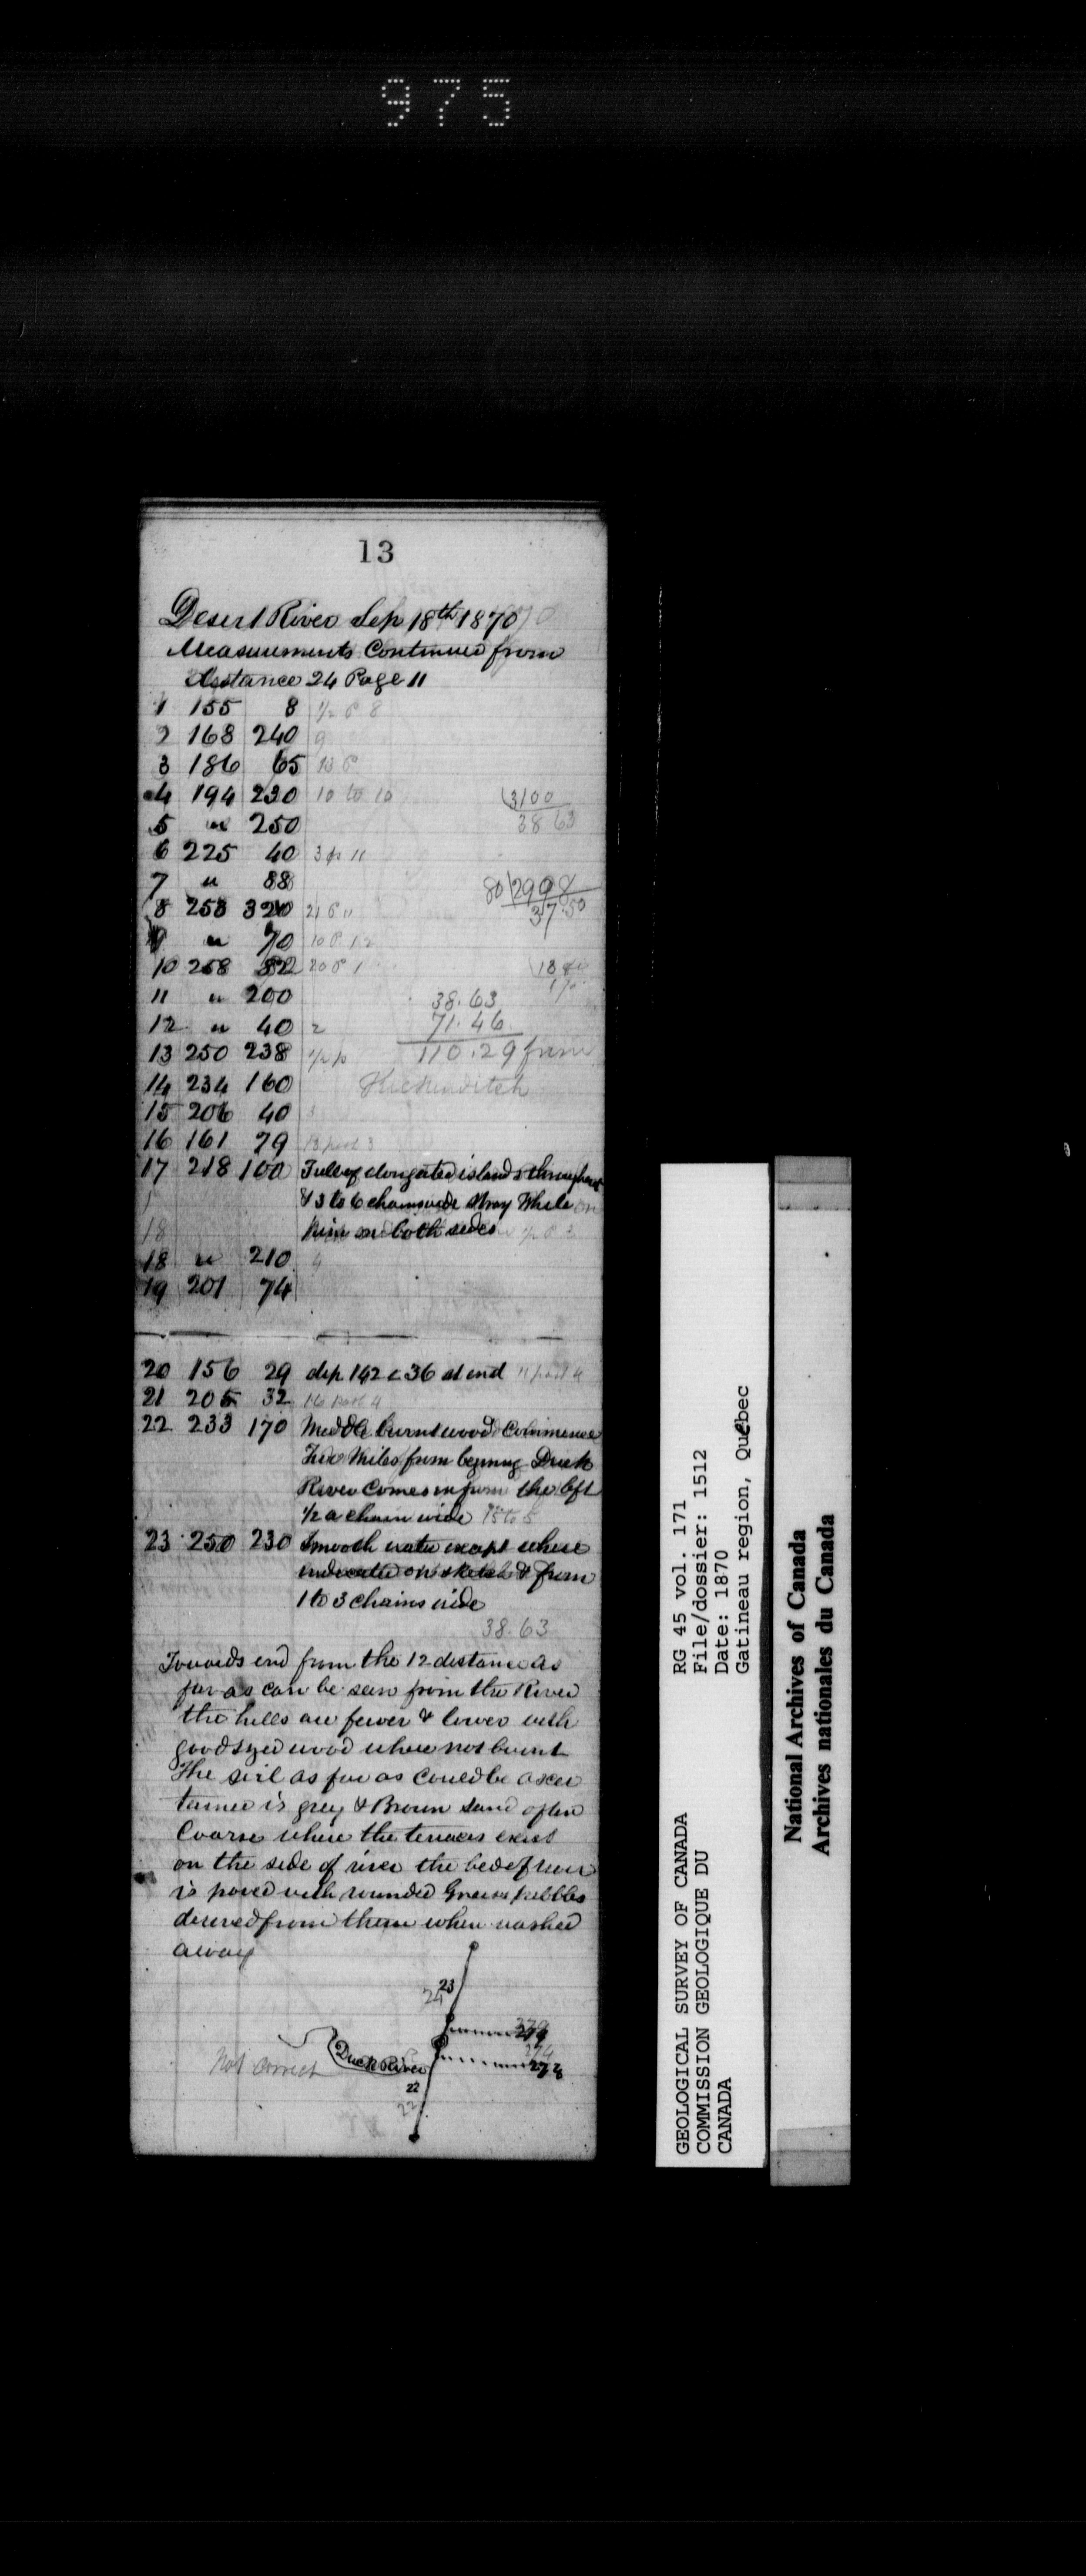 975
13
Desert River Sep 18th 1870
Measurements Continued from
distance 24 Page 11
1 155 8 1/2 P 8
2 168 240 9
3 186 65 13 P
4 194 230 10 to 10 3100
5 " 250 38 63
6 225 40 3 p 11
7 " 88 80 2998
8 258 320 21 P " 37.50
9 " 70 10 P 12
10 258 822 20 P 1
11 " 200 38.63
12 " 40 2 71.46
13 250 238 1/2 p 110.29 from
14 234 160
15 206 40 3
16 161 79 13 past 3
17 218 100 Full of elongated islands throughout
& 3 to 6 chains wide Stray White
18 pine on both sides
18 " 210 4
19 201 74
20 156 29 dep. 142 c 36 at end 11 past 4
21 205 32 16 past 4
22 233 170 Middle burnt wood Commence
Five Miles from begining Duck
River Comes in from the left
1/2 a chain wide 15 to 5
23 250 230 Smooth water except where
indicated on sketch & from
1 to 3 chains wide
38.63
Towards end from the 12 distance as
far as can be seen from the River
the hills are fewer & lower with
good sized wood where not burnt
The soil as far as could be ascer
tained is grey & Brown sand often
Coarse where the terraces exist
on the side of river the bed of river
is paved with rounded Gneiss pebbles
derived from them when washed
away
23
24
279
274
273
Duck River
Not Correct
22
22
GEOLOGICAL SURVEY OF CANADA
COMMISSION GEOLOGIQUE DU
CANADA
RG 45 vol. 171
File/dossier: 1512
Date: 1870
Gatineau region, Québec
National Archives of Canada
Archives nationales du Canada